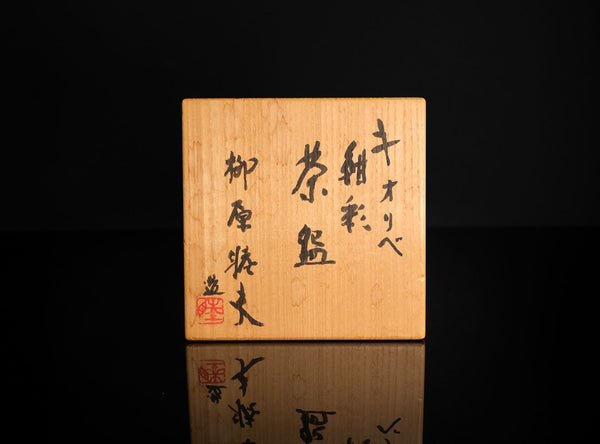 キオリベ
紺彩
茶盌
柳原睦夫
造